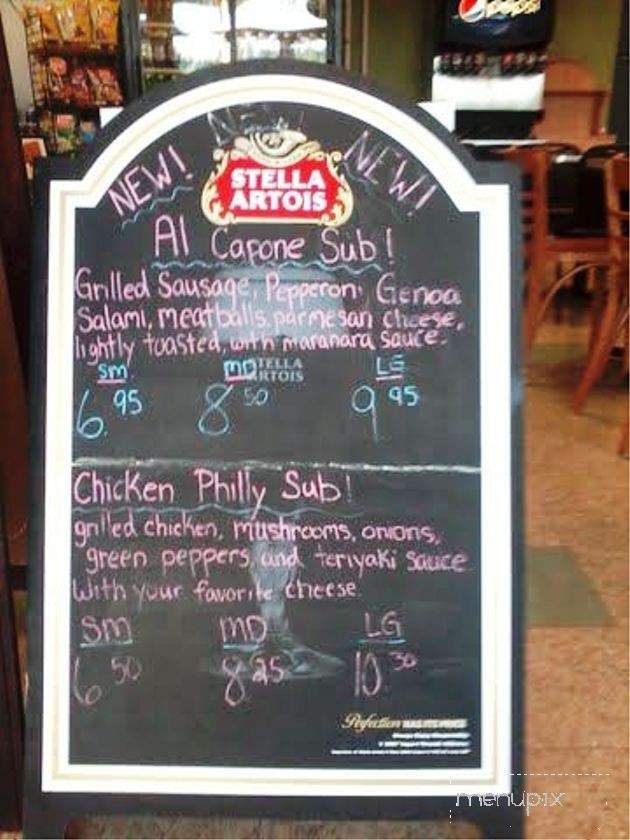 pepsi
NEW
NEW!
NEW!
STELLA
ARTOIS
Al Capone Sub!
Grilled Sausage, Pepperoni Genoa
Salami, meatballs, parmesan cheese,
lightly toasted, with maranara sauce.
SM MD LG
STELLA
ARTOIS
6.95 8 50 9 95
Chicken Philly Sub!
grilled chicken, mushrooms, onions,
green peppers, and teriyaki sauce
with your favorite cheese.
SM MD LG
6 50 8 25 10 30
Perfection HAS ITS PRICE
menupix